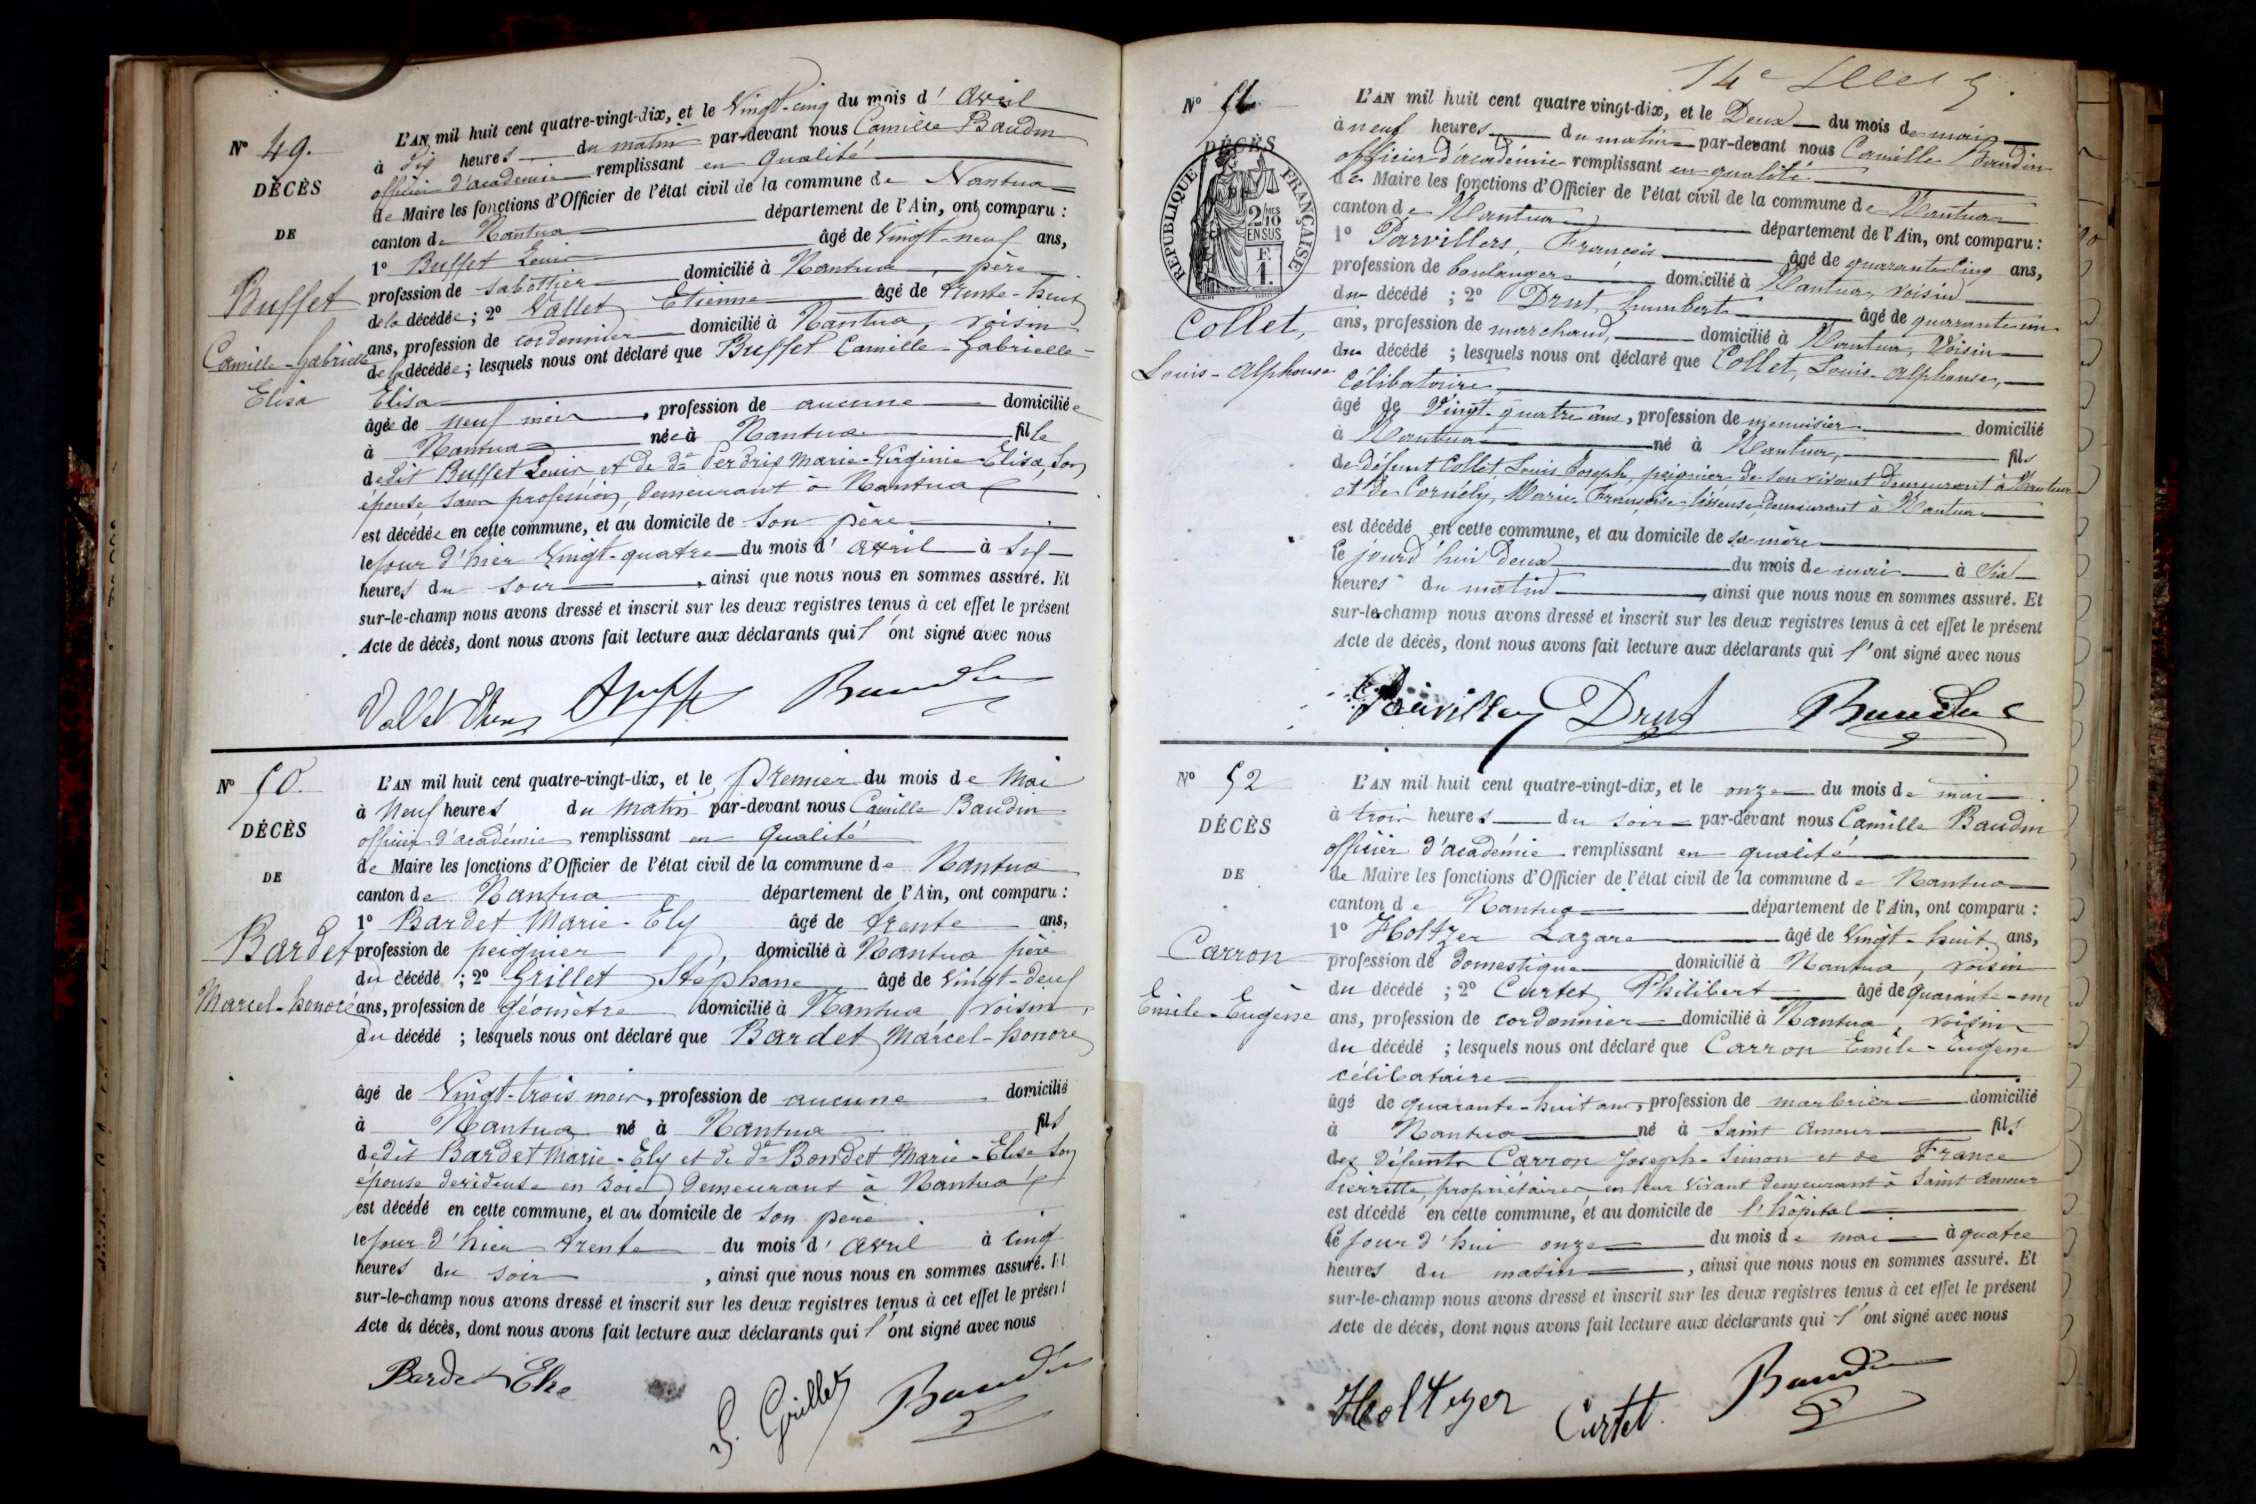 N° 49.
DÉCÈS
DE
Buffet
Camille-Gabrielle
Elisa
L'AN mil huit cent quatre-vingt-dix, et le Vingt-cinq du mois d' Avril
à dix heures du matin par-devant nous Camille Baudin
officier d'académie remplissant en qualité
de Maire les fonctions d'Officier de l'état civil de la commune de Nantua
canton de Nantua département de l'Ain, ont comparu :
1° Buffet Louis âgé de Vingt-neuf ans,
profession de sabottier domicilié à Nantua, père
de la décédée ; 2° Vallet Etienne âgé de trente-huit
ans, profession de cordonnier domicilié à Nantua, voisin
de la décédée ; lesquels nous ont déclaré que Buffet Camille-Gabrielle-
Elisa
âgée de neuf mois, profession de aucune domiciliée
à Nantua née à Nantua fille
dedit Buffet Louis et de de Perdrix Marie-Virginie-Elisa, son
épouse, sans profession, demeurant à Nantua
est décédée en cette commune, et au domicile de son père
le jour d'hier Vingt-quatre du mois d' avril à six
heures du soir, ainsi que nous nous en sommes assuré. Et
sur-le-champ nous avons dressé et inscrit sur les deux registres tenus à cet effet le présent
Acte de décès, dont nous avons fait lecture aux déclarants qui l'ont signé avec nous
Vallet Baudin
N° 50.
DÉCÈS
DE
Bardet
Marcel-honoré
L'AN mil huit cent quatre-vingt-dix, et le premier du mois de Mai
à Neuf heures du matin par-devant nous Camille Baudin
officier d'académie remplissant en qualité
de Maire les fonctions d'Officier de l'état civil de la commune de Nantua
canton de Nantua département de l'Ain, ont comparu :
1° Bardet Marie-Ely âgé de trente ans,
profession de peignier domicilié à Nantua père
du décédé ; 2° Grillet Stéphane âgé de Vingt-deux
ans, profession de géomètre domicilié à Nantua, voisin,
du décédé ; lesquels nous ont déclaré que Bardet Marcel-honoré
âgé de Vingt-trois mois, profession de aucune domicilié
à Nantua né à Nantua fils
dedit Bardet Marie-Ely et de de Bondet Marie-Elise son
épouse devideuse en soie, demeurant à Nantua
est décédé en cette commune, et au domicile de son père
le jour d'hier trente du mois d' avril à cinq
heures du soir, ainsi que nous nous en sommes assuré. Et
sur-le-champ nous avons dressé et inscrit sur les deux registres tenus à cet effet le présent
Acte de décès, dont nous avons fait lecture aux déclarants qui l'ont signé avec nous
Bardet Elie S. Grillet Baudin
14e
N° 51
DÉCÈS
RÉPUBLIQUE FRANÇAISE
2/10 MES
EN SUS
F.
1.
Collet,
Louis-Alphonse
L'AN mil huit cent quatre vingt-dix, et le Deux du mois de mai
à neuf heures du matin par-devant nous Camille Baudin
officier d'académie remplissant en qualité
de Maire les fonctions d'Officier de l'état civil de la commune de Nantua
canton de Nantua département de l'Ain, ont comparu :
1° Parvillers, François âgé de quarante cinq ans,
profession de boulanger domicilié à Nantua, voisin
du décédé ; 2° Drut, humbert âgé de quarante-un
ans, profession de marchand, domicilié à Nantua, Voisin
du décédé ; lesquels nous ont déclaré que Collet, Louis-Alphonse,
Célibataire
âgé de Vingt-quatre ans, profession de menuisier domicilié
à Nantua né à Nantua, fils
de défunt Collet Louis Joseph, peignier de son vivant demeurant à Nantua
et de Cornély, Marie Françoise, lisseuse, demeurant à Nantua
est décédé en cette commune, et au domicile de sa mère
le jourd'hui deux du mois de mai à six
heures du matin, ainsi que nous nous en sommes assuré. Et
sur-le-champ nous avons dressé et inscrit sur les deux registres tenus à cet effet le présent
Acte de décès, dont nous avons fait lecture aux déclarants qui l'ont signé avec nous
Drut Baudin
N° 52
DÉCÈS
DE
Carron
Emile-Eugène
L'AN mil huit cent quatre-vingt-dix, et le onze du mois de mai
à trois heures du soir par-devant nous Camille Baudin
officier d'académie remplissant en qualité
de Maire les fonctions d'Officier de l'état civil de la commune de Nantua
canton de Nantua département de l'Ain, ont comparu :
1° Holtzer Lazare âgé de Vingt-huit ans,
profession de domestique domicilié à Nantua, voisin
du décédé ; 2° Curtet Philibert âgé de quarante-un
ans, profession de cordonnier domicilié à Nantua, voisin
du décédé ; lesquels nous ont déclaré que Carron Emile-Eugène
célibataire
âgé de quarante-huit ans, profession de marbrier domicilié
à Nantua né à Saint Amour fils
des défunts Carron Joseph-Simon et de France
Pierrette, propriétaires en leur vivant demeurant à Saint Amour
est décédé en cette commune, et au domicile de l'hôpital
le jour d'hui onze du mois de mai à quatre
heures du matin, ainsi que nous nous en sommes assuré. Et
sur-le-champ nous avons dressé et inscrit sur les deux registres tenus à cet effet le présent
Acte de décès, dont nous avons fait lecture aux déclarants qui l'ont signé avec nous
Holtzer Curtet Baudin